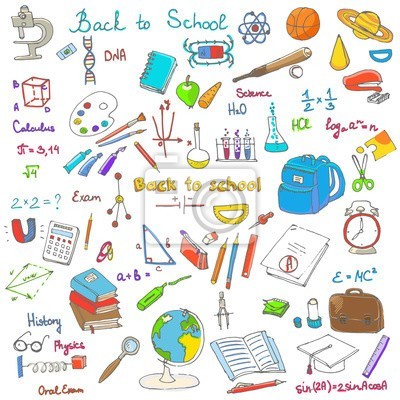 Back to School
DNA
Science
H2O
1/2 × 1/3
HCl
logₐaⁿ=n
a
b
c
Calculus
π = 3,14
√4
Exam
Back to school
2×2=?
a+b=
A
E=MC²
History
Physics
Oral Exam
sin(2A)=2sinAcosA